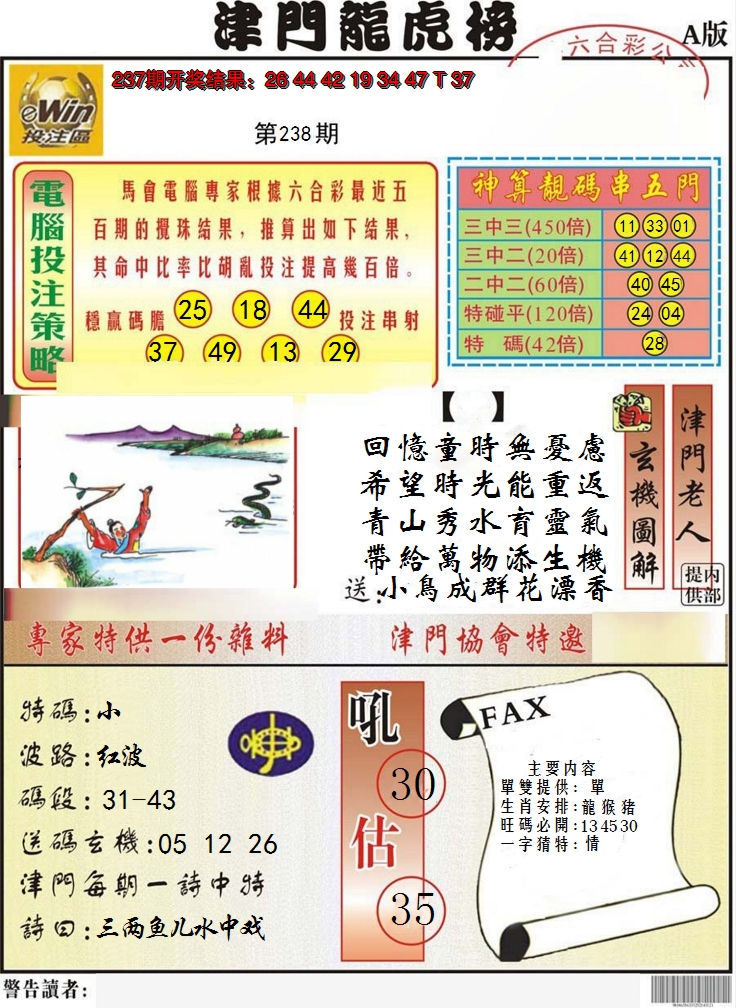 津門龍虎榜
A版
六合彩公
237期开奖结果：26 44 42 19 34 47 T 37
eWin
投注區
第238期
電腦投注策略
馬會電腦專家根據六合彩最近五
百期的攪珠结果，推算出如下结果，
其命中比率比胡亂投注提高幾百倍。
穩赢碼膽 25 18 44 投注串射
37 49 13 29
神算靚碼串五門
三中三(450倍) 11 33 01
三中二(20倍) 41 12 44
二中二(60倍) 40 45
特碰平(120倍) 24 04
特 碼(42倍) 28
【 】
回憶童時無憂慮
希望時光能重返
青山秀水育靈氣
帶給萬物添生機
送:小鳥成群花漂香
玄機圖解
津門老人
内部提供
專家特供一份雜料
津門協會特邀
特碼:小
波路:红波
碼段:31-43
送碼玄機:05 12 26
津門每期一詩中特
詩曰:三两鱼儿水中戏
吼
30
估
35
FAX
主要内容
單雙提供：單
生肖安排:龍猴豬
旺碼必開:134530
一字猜特:情
警告讀者: